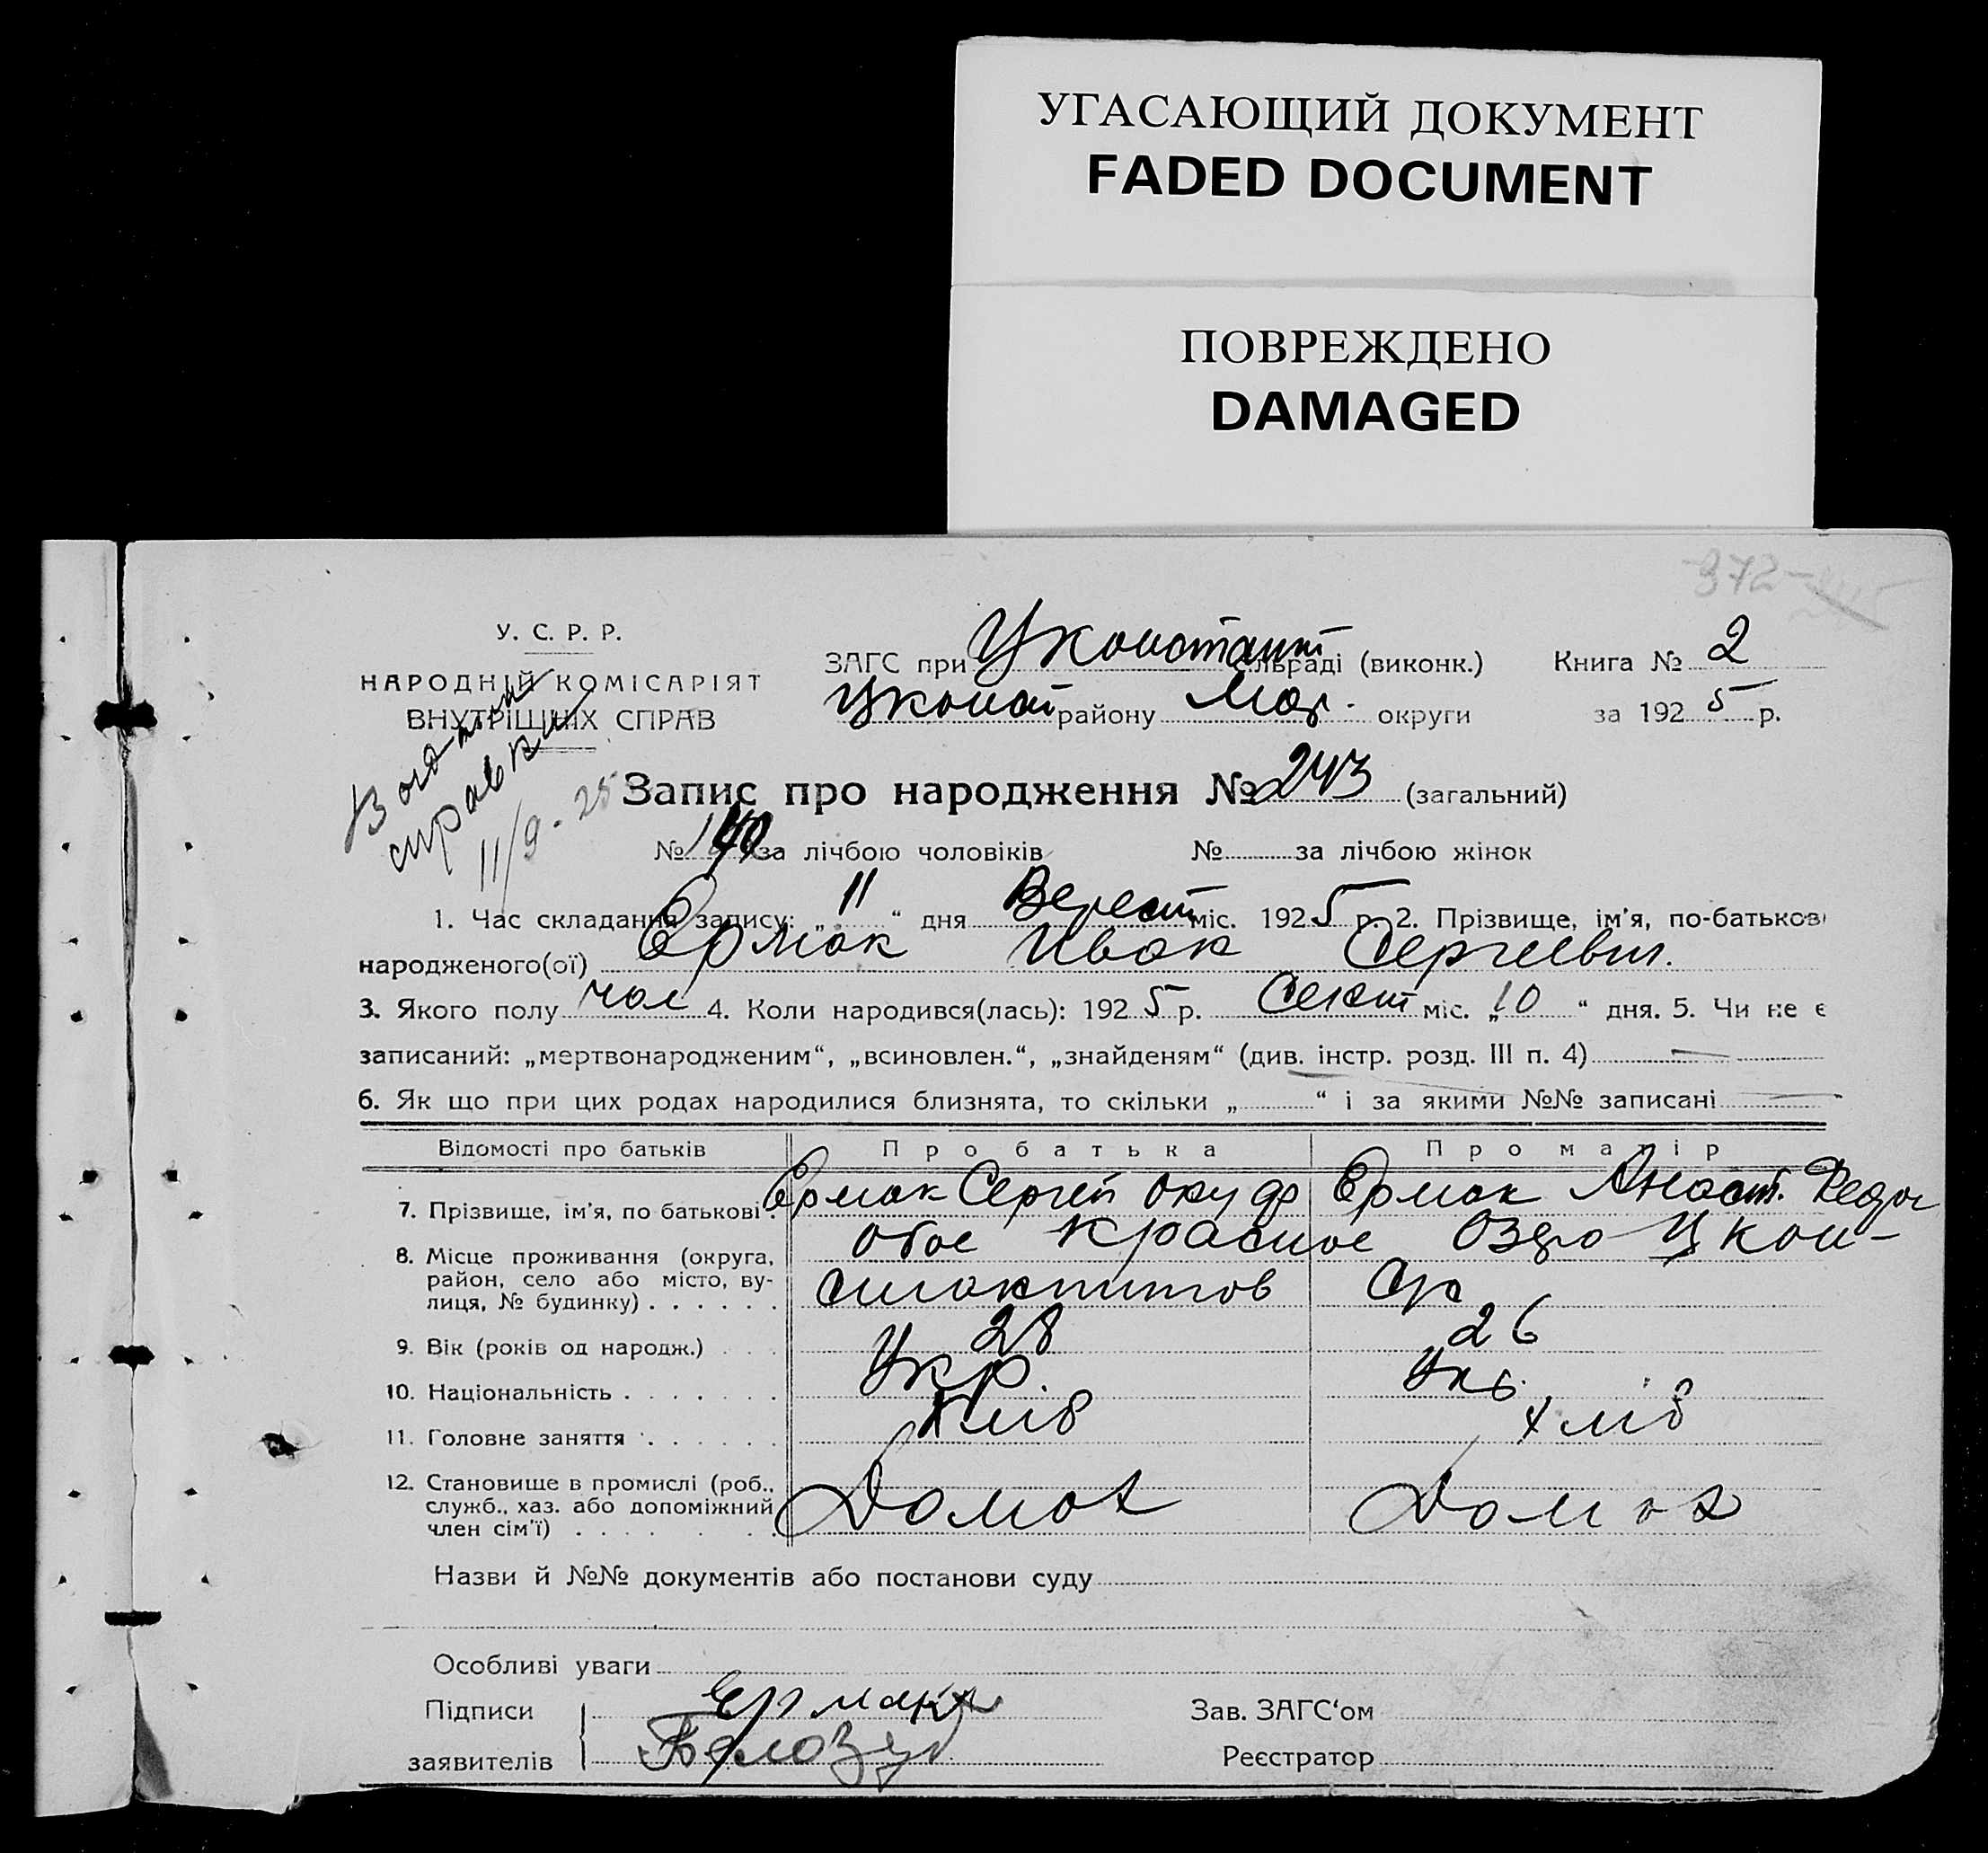 УГАСАЮЩИЙ ДОКУМЕНТ
FADED DOCUMENT
ПОВРЕЖДЕНО
DAMAGED
372
У. С. Р. Р.
НАРОДНІЙ КОМІСАРІЯТ
ВНУТРІШНІХ СПРАВ
справки
11/9-25
ЗАГС при Уконстант сільраді (виконк.) Книга № 2
району Мар. округи за 1925 р.
Запис про народження № 243 (загальний)
№ за лічбою чоловіків № за лічбою жінок
1. Час складання запису: „11“ дня Верест міс. 1925 р. 2. Прізвище, ім'я, по-батькові
народженого(ої) Ермак Иван Сергеевич.
3. Якого полу чол 4. Коли народився(лась): 1925 р. Сент міс. „10“ дня. 5. Чи не є
записаний: „мертвонародженим“, „всиновлен.“, „знайденям“ (див. інстр. розд. III п. 4) —
6. Як що при цих родах народилися близнята, то скільки „ “ і за якими №№ записані —
Відомості про батьків Про батька Про матір
7. Прізвище, ім'я, по батькові Ермак Сергей Ермак Анаст. Федор
8. Місце проживання (округа, район, село або місто, вулиця, № будинку) обое Красное Озро
9. Вік (років од народж.) 28 26
10. Національність Укр. Укр.
11. Головне заняття Хліб Хліб
12. Становище в промислі (роб., служб., хаз. або допоміжний член сім'ї) Домох Домох
Назви й №№ документів або постанови суду
Особливі уваги
Підписи Ермак Зав. ЗАГС'ом
заявителів Белозуб Реєстратор